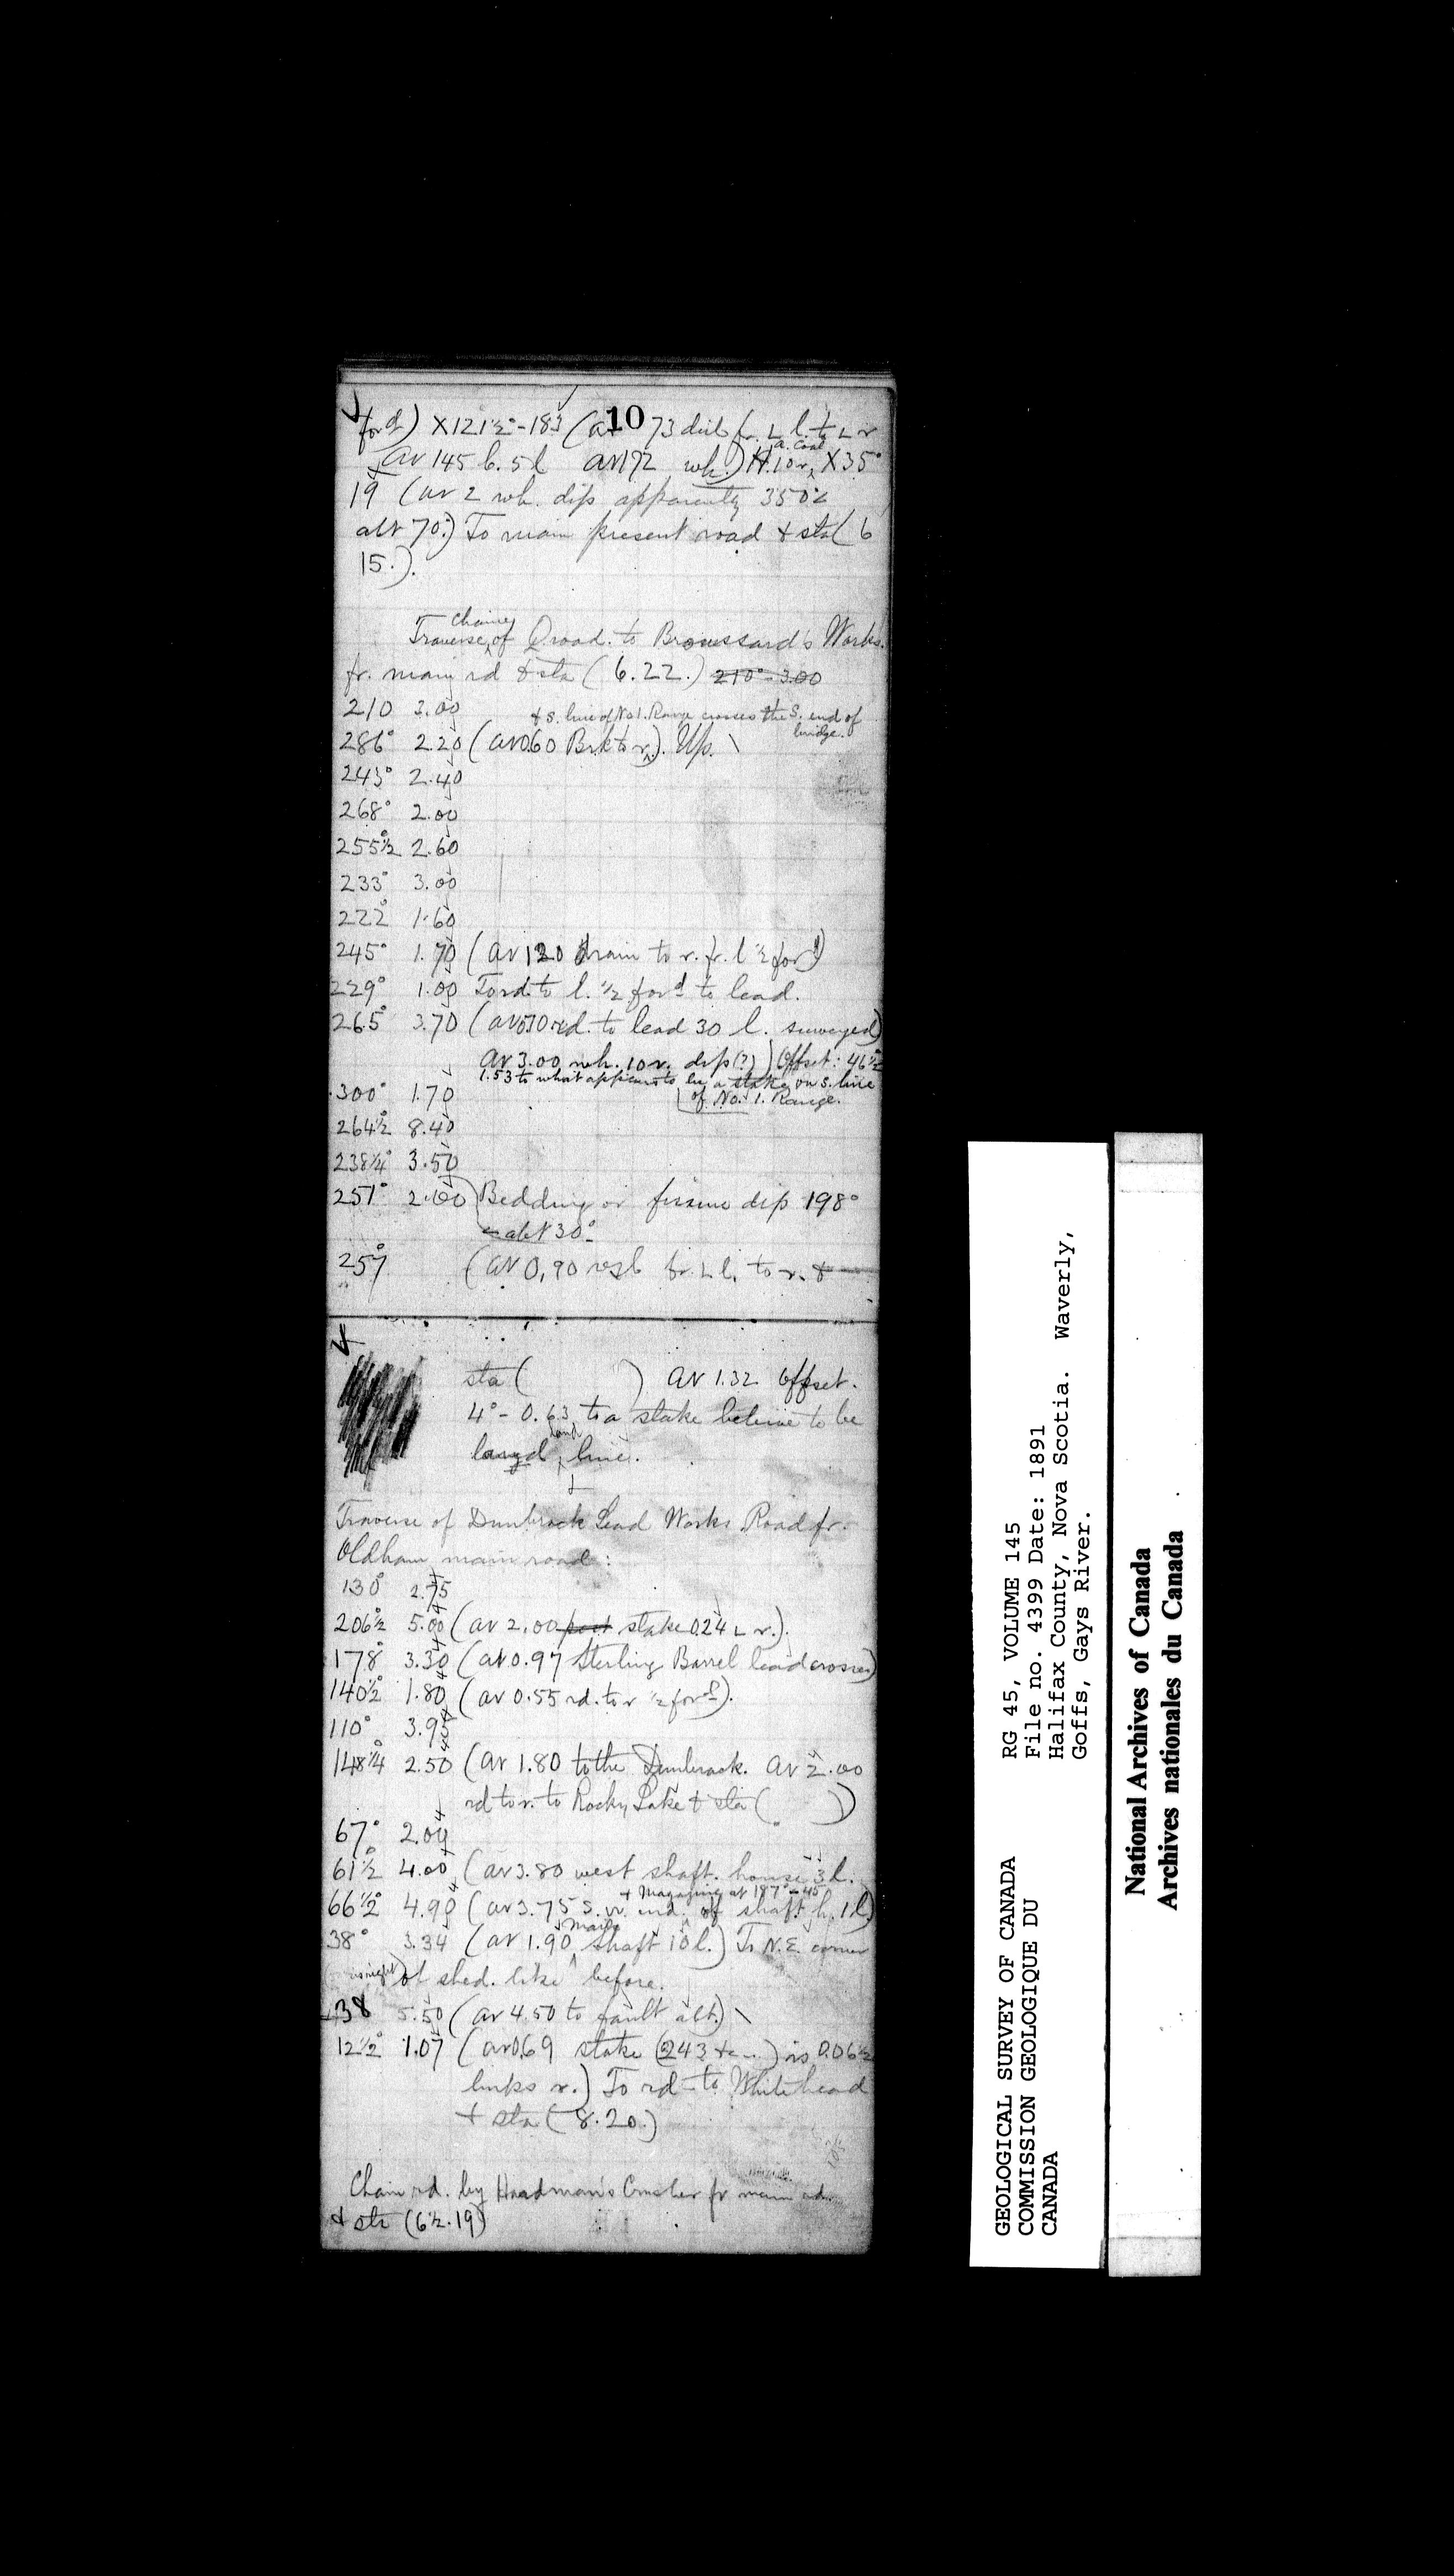 10
for d) X121½°-183 (at 73 fr. L l. to L r
(at 145 b. 5 l at 172 wh.) 10 r, X35°
19 (at 2 wh. dip apparently 350°
alt 70°.) To main present road & sta (6
15.).
Chaining
Traverse, of road to Broussard's Works.
fr. main rd & sta (6.22.) 210° - 3.00
210 3.00 & S. line of No 1. Range crosses the S. end of
bridge.
286° 2.20 (at 0.60 Brk to r.). Up.
243° 2.40
268° 2.00
255½° 2.60
233° 3.00
222° 1.60
245° 1.70 (at 120 drain to r. fr. l ½ for d)
229° 1.00 To rd. to l. ½ for d to lead.
265° 3.70 (at 0.70 rd. to lead 30 l. surveyed)
at 3.00 wh. 10 r. dip (?)) Offset: 46½°
1.53 to what appears to be a stake on S. line
of No. 1. Range.
300° 1.70
264½ 8.40
238¼° 3.50
251° 2.00 Bedding or fissure dip 198°
alt 30°
257° (at 0,90 fr. L l. to r. &
sta ( ) at 1.32 offset.
4° - 0.63 to a stake believe to be
land
line.
Traverse of Dunbrack Lead Works Road fr.
Oldham main road:
130° 2.75
206½° 5.00 (at 2.00 post stake 0.24 L r.).
178° 3.30 (at 0.97 Sterling Barrel lead crosses)
140½° 1.80 (at 0.55 rd. to r ½ for d).
110° 3.95
148¼° 2.50 (at 1.80 to the Dunbrack. at 2.00
rd to r. to Rocky Lake & sta ( ))
67° 2.00
61½° 4.00 (at 3.80 west shaft. house 3 l.
+ Magazine at 187° - 45
66½° 4.90 (at 3.75 S. w. end. of shaft h. 1 l)
Main
38° 3.34 (at 1.90 shaft 10 l.) To N.E. corner
of shed. like before.
38 5.50 (at 4.50 to fault alt.)
12½° 1.07 (at 0.69 stake (243 ) is 0.06½
links r.) To rd to Whitehead
& sta (8.20.)
Chain rd. by Hardman's Crusher fr main rd.
& sta (6½.19)
GEOLOGICAL SURVEY OF CANADA
COMMISSION GEOLOGIQUE DU
CANADA
RG 45, VOLUME 145
File no. 4399 Date: 1891
Halifax County, Nova Scotia. Waverly,
Goffs, Gays River.
National Archives of Canada
Archives nationales du Canada